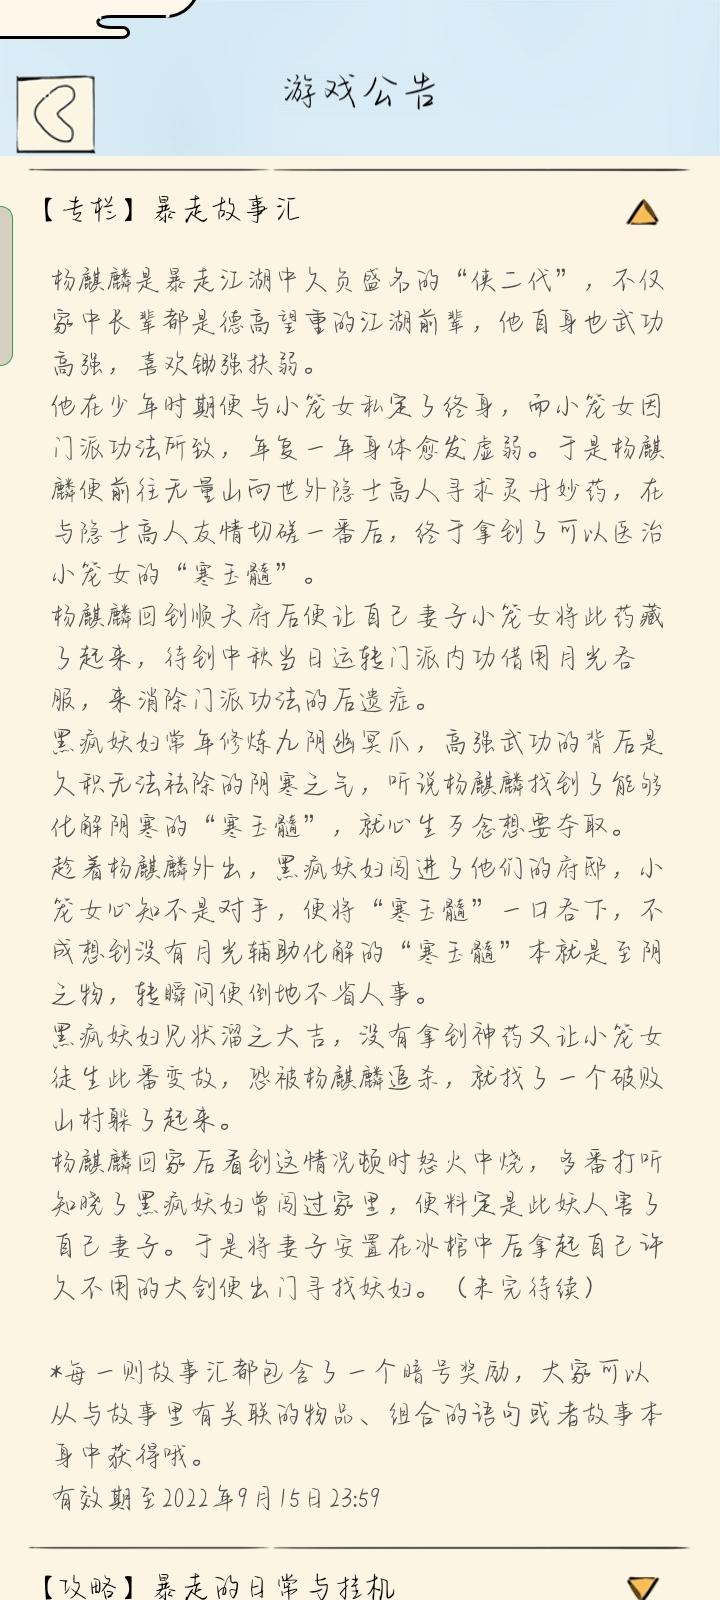 游戏公告
【专栏】暴走故事汇
杨麒麟是暴走江湖中久负盛名的“侠二代”，不仅
家中长辈都是德高望重的江湖前辈，他自身也武功
高强，喜欢锄强扶弱。
他在少年时期便与小笼女私定了终身，而小笼女因
门派功法所致，年复一年身体愈发虚弱。于是杨麒
麟便前往无量山向世外隐士高人寻求灵丹妙药，在
与隐士高人友情切磋一番后，终于拿到了可以医治
小笼女的“寒玉髓”。
杨麒麟回到顺天府后便让自己妻子小笼女将此药藏
了起来，待到中秋当日运转门派内功借用月光吞
服，来消除门派功法的后遗症。
黑疯妖妇常年修炼九阴幽冥爪，高强武功的背后是
久积无法祛除的阴寒之气，听说杨麒麟找到了能够
化解阴寒的“寒玉髓”，就心生歹念想要夺取。
趁着杨麒麟外出，黑疯妖妇闯进了他们的府邸，小
笼女心知不是对手，便将“寒玉髓”一口吞下，不
成想到没有月光辅助化解的“寒玉髓”本就是至阴
之物，转瞬间便倒地不省人事。
黑疯妖妇见状溜之大吉，没有拿到神药又让小笼女
徒生此番变故，恐被杨麒麟追杀，就找了一个破败
山村躲了起来。
杨麒麟回家后看到这情况顿时怒火中烧，多番打听
知晓了黑疯妖妇曾闯过家里，便料定是此妖人害了
自己妻子。于是将妻子安置在冰棺中后拿起自己许
久不用的大剑便出门寻找妖妇。（未完待续）
*每一则故事汇都包含了一个暗号奖励，大家可以
从与故事里有关联的物品、组合的语句或者故事本
身中获得哦。
有效期至2022年9月15日23:59
【攻略】暴走的日常与挂机